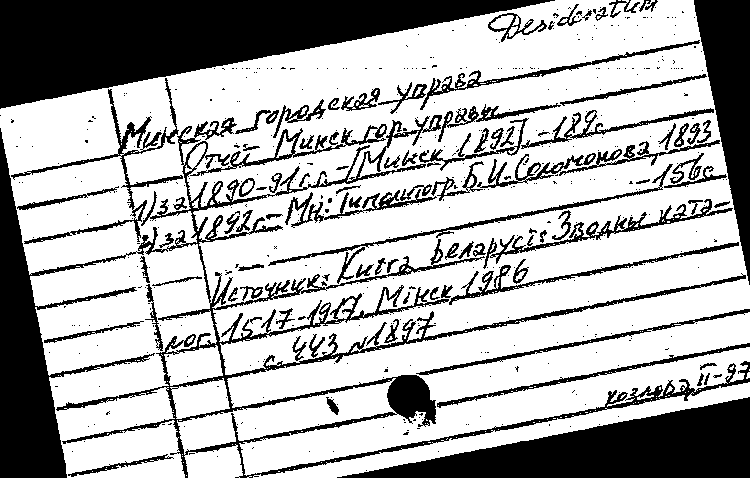 Desideratum
Минская городская управа
Отчёт Минск. гор. управы
1) за 1890-91 г.г. - [Минск, 1892]. - 189 с.
2) за 1892 г. - Мн: Типолитогр. Б.И. Соломонова, 1893
- 156 с
Источник: Кнiга Беларусi: Зводны ката-
лог. 1517-1917. Мiнск, 1986
с. 443, №1897
Козлова, II-97